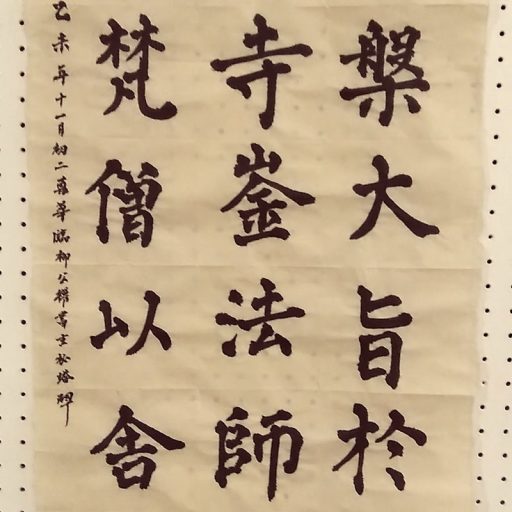 槃大旨於
寺崟法師
梵僧以舍
乙未年十一月初二華臨柳公權書玄秘塔碑